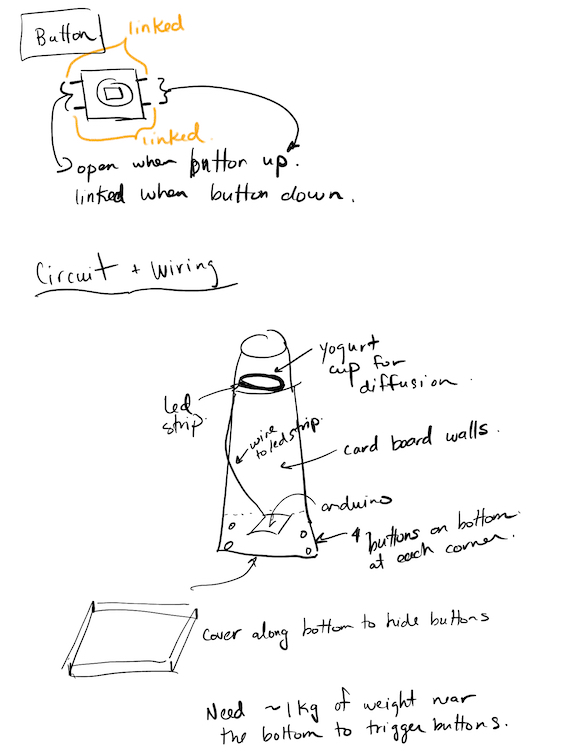 Button
linked
linked
open when button up.
linked when button down.
Circuit + Wiring
yogurt
cup for
diffusion.
led
strip.
wire
to led strip.
card board walls.
arduino
4 buttons on bottom
at each corner.
Cover along bottom to hide buttons
Need ~1kg of weight near
the bottom to trigger buttons.